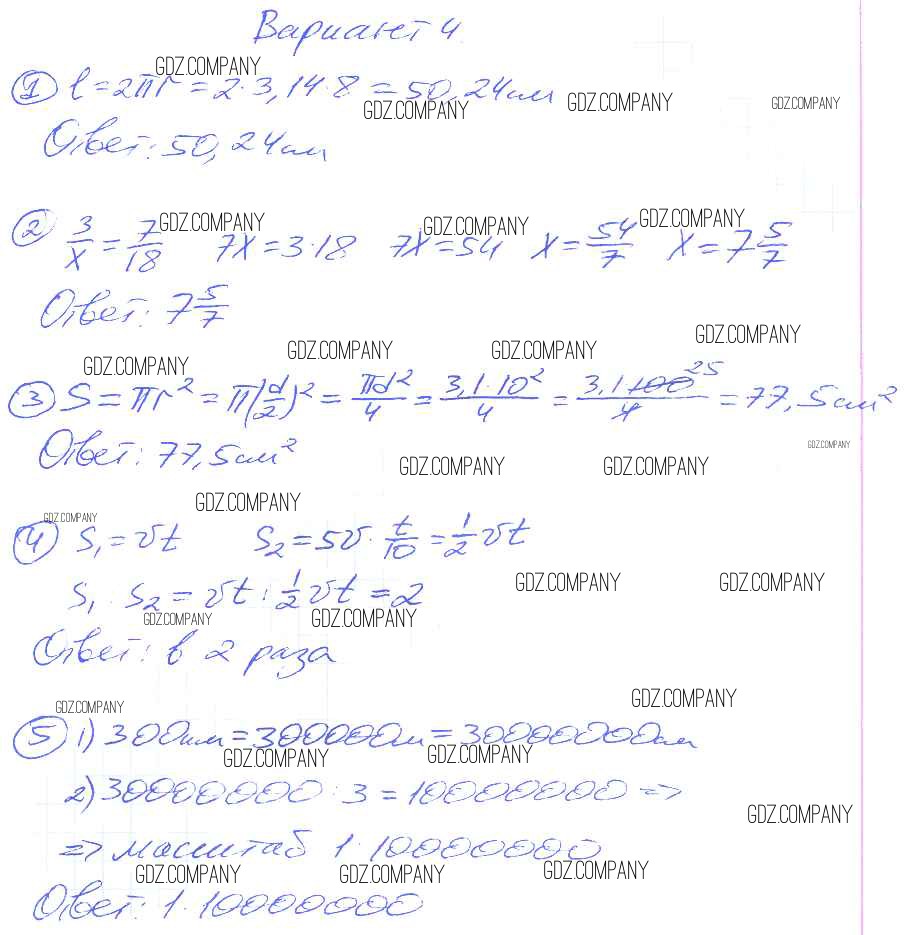 Вариант 4
GDZ.COMPANY
① l = 2πr = 2·3,14·8 = 50,24см
GDZ.COMPANY GDZ.COMPANY GDZ.COMPANY
Ответ: 50,24см
GDZ.COMPANY GDZ.COMPANY GDZ.COMPANY
② 3/x = 7/18 7x = 3·18 7x = 54 x = 54/7 x = 7 5/7
Ответ: 7 5/7
GDZ.COMPANY GDZ.COMPANY GDZ.COMPANY GDZ.COMPANY
③ S = πr² = π(d/2)² = πd²/4 = 3,1·10²/4 = 3,1·100/4 25 = 77,5см²
Ответ: 77,5см²
GDZ.COMPANY GDZ.COMPANY GDZ.COMPANY
GDZ.COMPANY GDZ.COMPANY
④ S₁ = vt S₂ = 5v·t/10 = 1/2 vt
S₁ : S₂ = vt : 1/2 vt = 2
GDZ.COMPANY GDZ.COMPANY
GDZ.COMPANY GDZ.COMPANY
Ответ: в 2 раза
GDZ.COMPANY GDZ.COMPANY
⑤ 1) 300км = 300000м = 30000000см
GDZ.COMPANY GDZ.COMPANY
2) 30000000 : 3 = 10000000 =>
GDZ.COMPANY
=> масштаб 1:10000000
GDZ.COMPANY GDZ.COMPANY GDZ.COMPANY
Ответ: 1:10000000